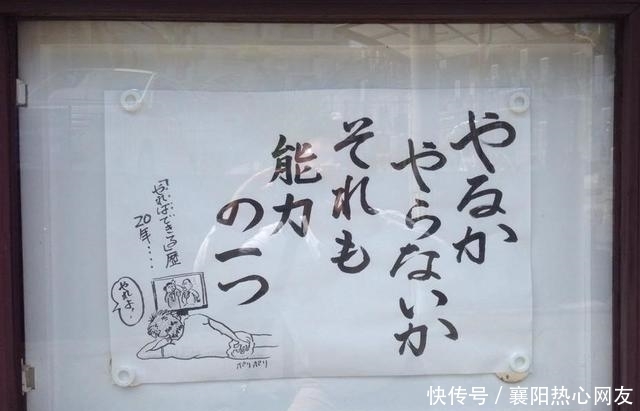 やるか
やらないか
それも
能力
の一つ
「やればできる」歴
20年‥‥
やれよ!
ポリポリ
快传号/襄阳热心网友